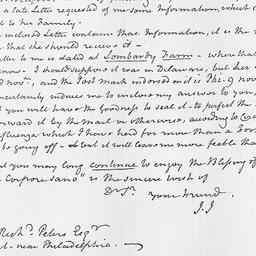 a late Letter requested of me some Information, which
to her Family.
enclosed Letter contains that Information, it is the
that she should receive it —
letter to me is dated at Lombardy Farm — where that
know — I should suppose it was in Delaware, but her
nov.r, and the Post mark endorsed on it is Phi.a 9 nov
uncertainty induces me to enclose my answer to you,
you will have the goodness to seal it — to perfect the
forward it by the mail or otherwise, according to
Influenza which I have had for more than a
to going off — but it will leave me more feeble tha
that you may long continue to enjoy the Blessing of
Corpore sano" is the sincere wish of
Dr Sr. your friend.
J.J
Rich.d Peters Esq.r
near Philadelphia. —